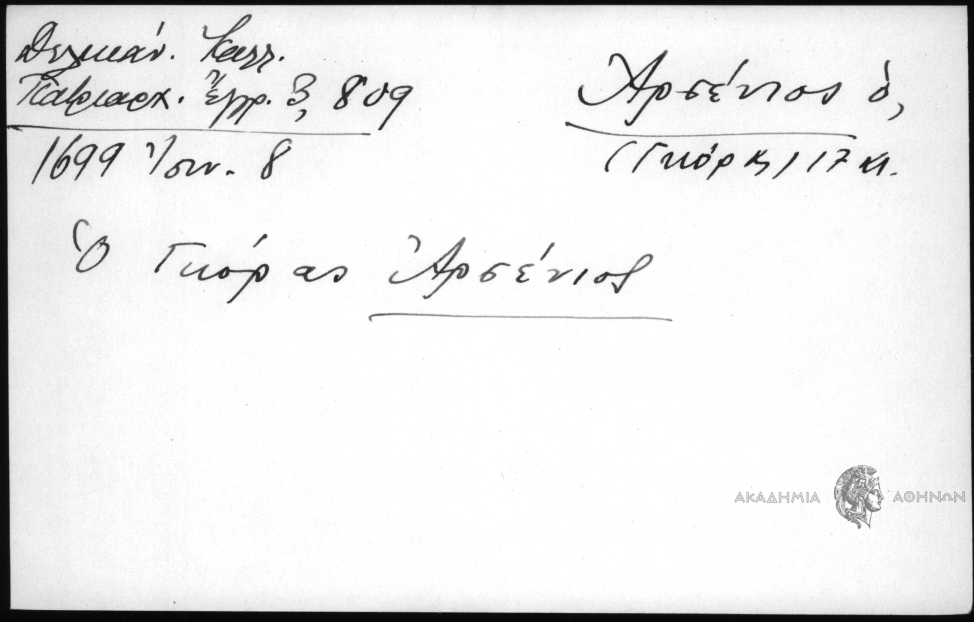 Δελικάν. Καλλ.
Πατριαρχ. Ἔγγρ. 3, 809
1699 Ἰουν. 8
Ἀρσένιος ὁ,
(Γκιόρκ) 17 αι.
Ὁ Γκιόρας Ἀρσένιος
ΑΚΑΔΗΜΙΑ ΑΘΗΝΩΝ